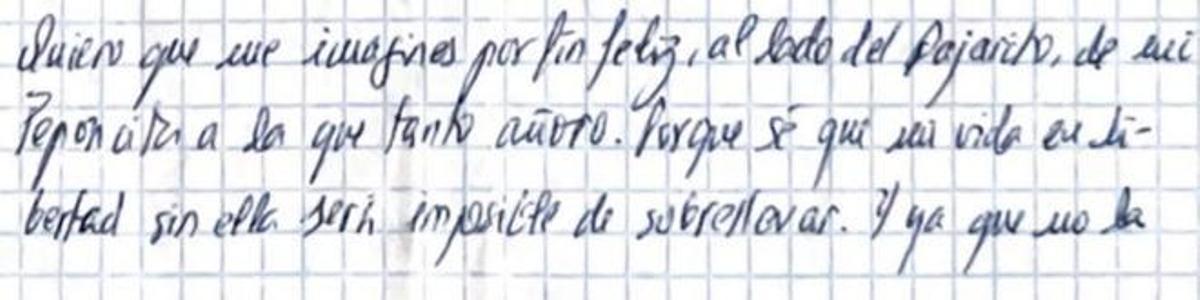 Quiero que me imagines por fin feliz, al lado del Pajarito, de mi
Peponcita a la que tanto añoro. Porque sé que mi vida en li-
bertad sin ella será imposible de sobrellevar. Y ya que no la